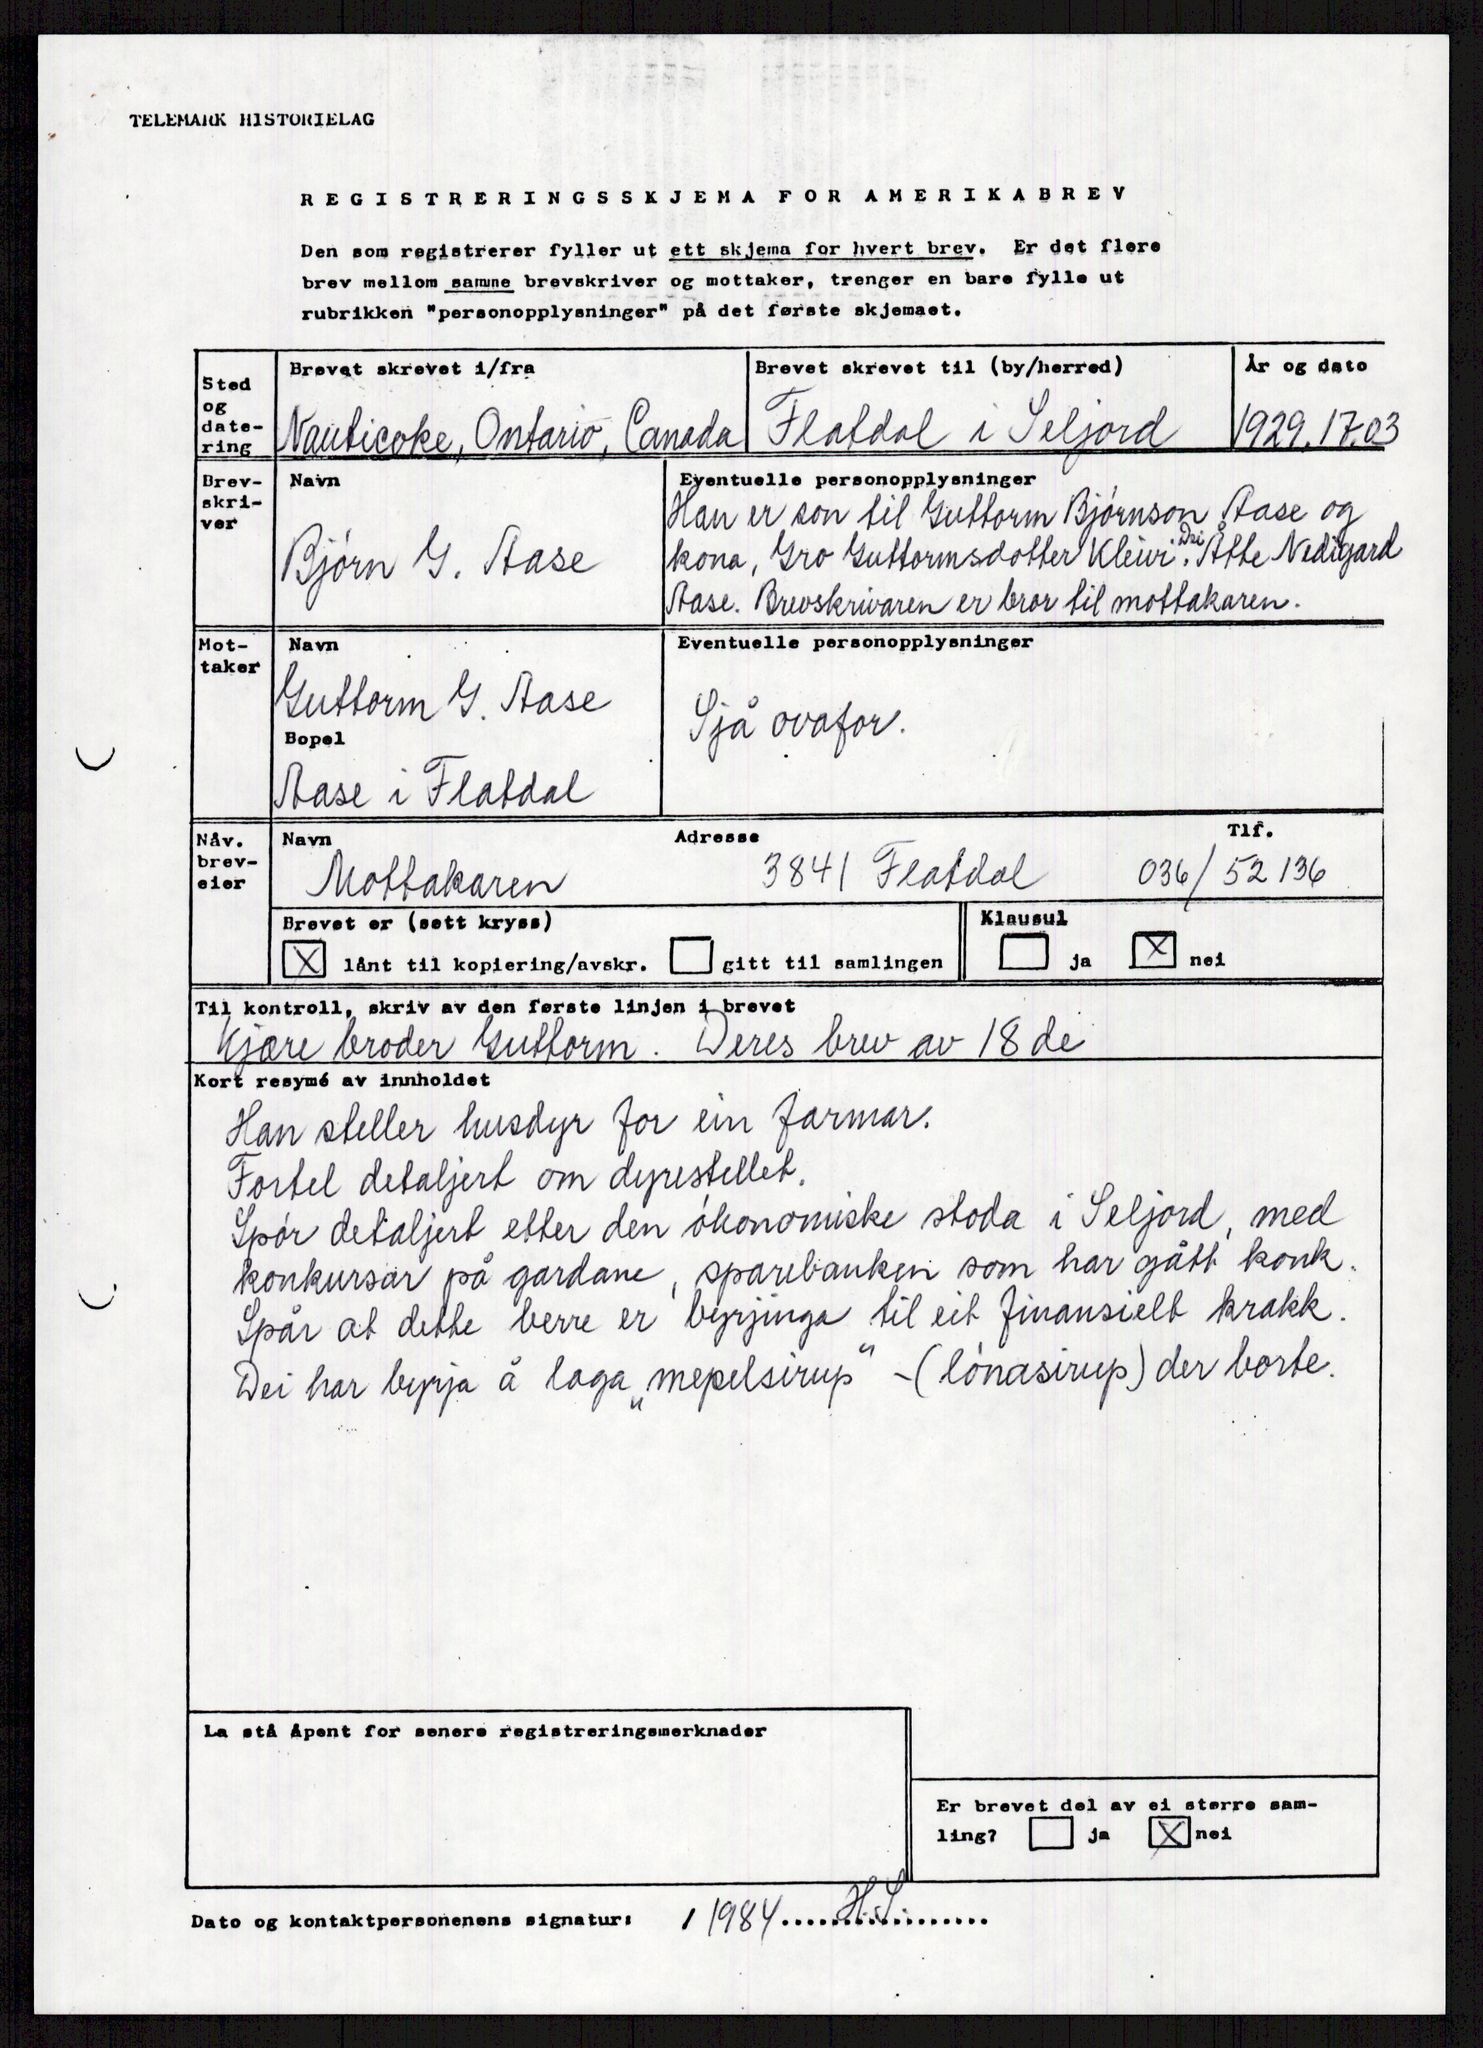 TELEMARK HISTORIELAG
REGISTRERINGSSKJEMA FOR AMERIKABREV
Den som registrerer fyller ut ett skjema for hvert brev. Er det flere
brev mellom samme brevskriver og mottaker, trenger en bare fylle ut
rubrikken "personopplysninger" på det første skjemaet.
Sted og date-ring
Brevet skrevet i/fra
Brevet skrevet til (by/herred)
År og dato
Nauticoke, Ontario, Canada
Flatdal i Seljord
1929.17.03
Brev-skri-ver
Navn
Bjørn G. Aase
Eventuelle personopplysninger
Han er son til Guttorm Bjørnson Aase og
kona, Gro Guttormsdotter Kleivi. Dei Åtte Nedigard
Aase. Brevskrivaren er bror til mottakaren.
Mot-taker
Navn
Guttorm G. Aase
Bopel
Aase i Flatdal
Eventuelle personopplysninger
Sjå ovafor.
Nåv. brev-eier
Navn
Adresse
Tlf.
Mottakaren
3841 Flatdal
036/52136
Brevet er (sett kryss)
X lånt til kopiering/avskr.
gitt til samlingen
Klausul
ja
X nei
Til kontroll, skriv av den første linjen i brevet
Kjære broder Guttorm. Deres brev av 18 de
Kort resymé av innholdet
Han steller husdyr for ein farmar.
Fortel detaljert om dyrestellet.
Spør detaljert etter den økonomiske stoda i Seljord, med
konkursar på gardane, sparebanken som har gått konk.
Spår at dette berre er byrjinga til eit finansielt krakk.
Dei har byrja å laga „mepelsirup“ - (lønasirup) der borte.
La stå åpent for senere registreringsmerknader
Er brevet del av ei større sam-
ling? ja X nei
Dato og kontaktpersonenens signatur: / 1984 H.S.